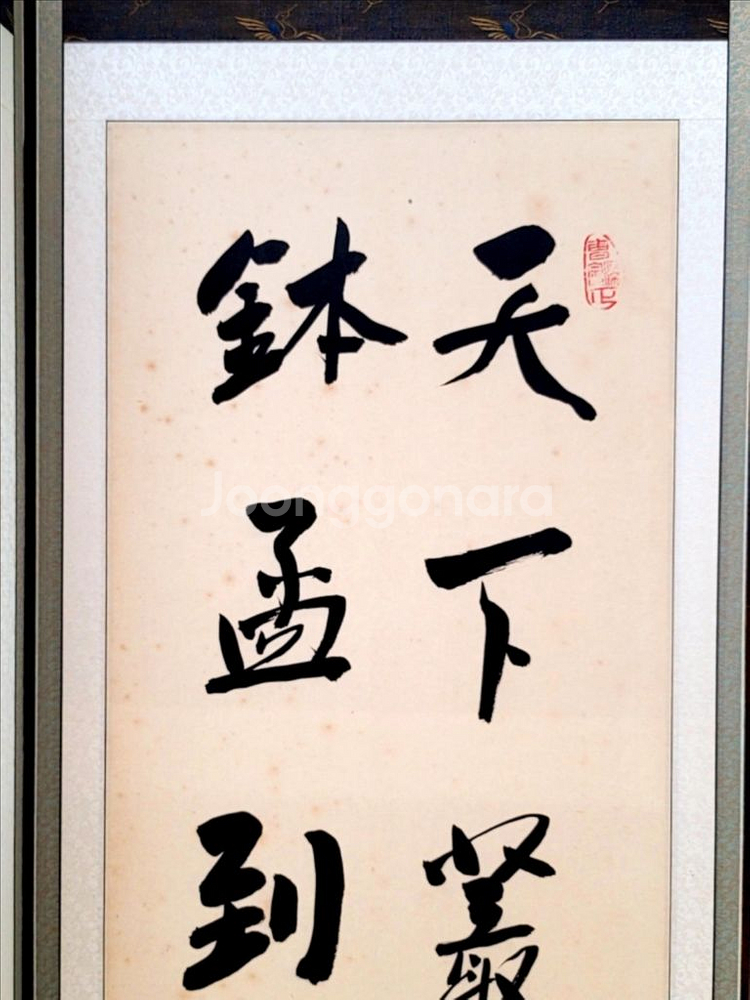 天下叢
鉢盂到
Joonggonara